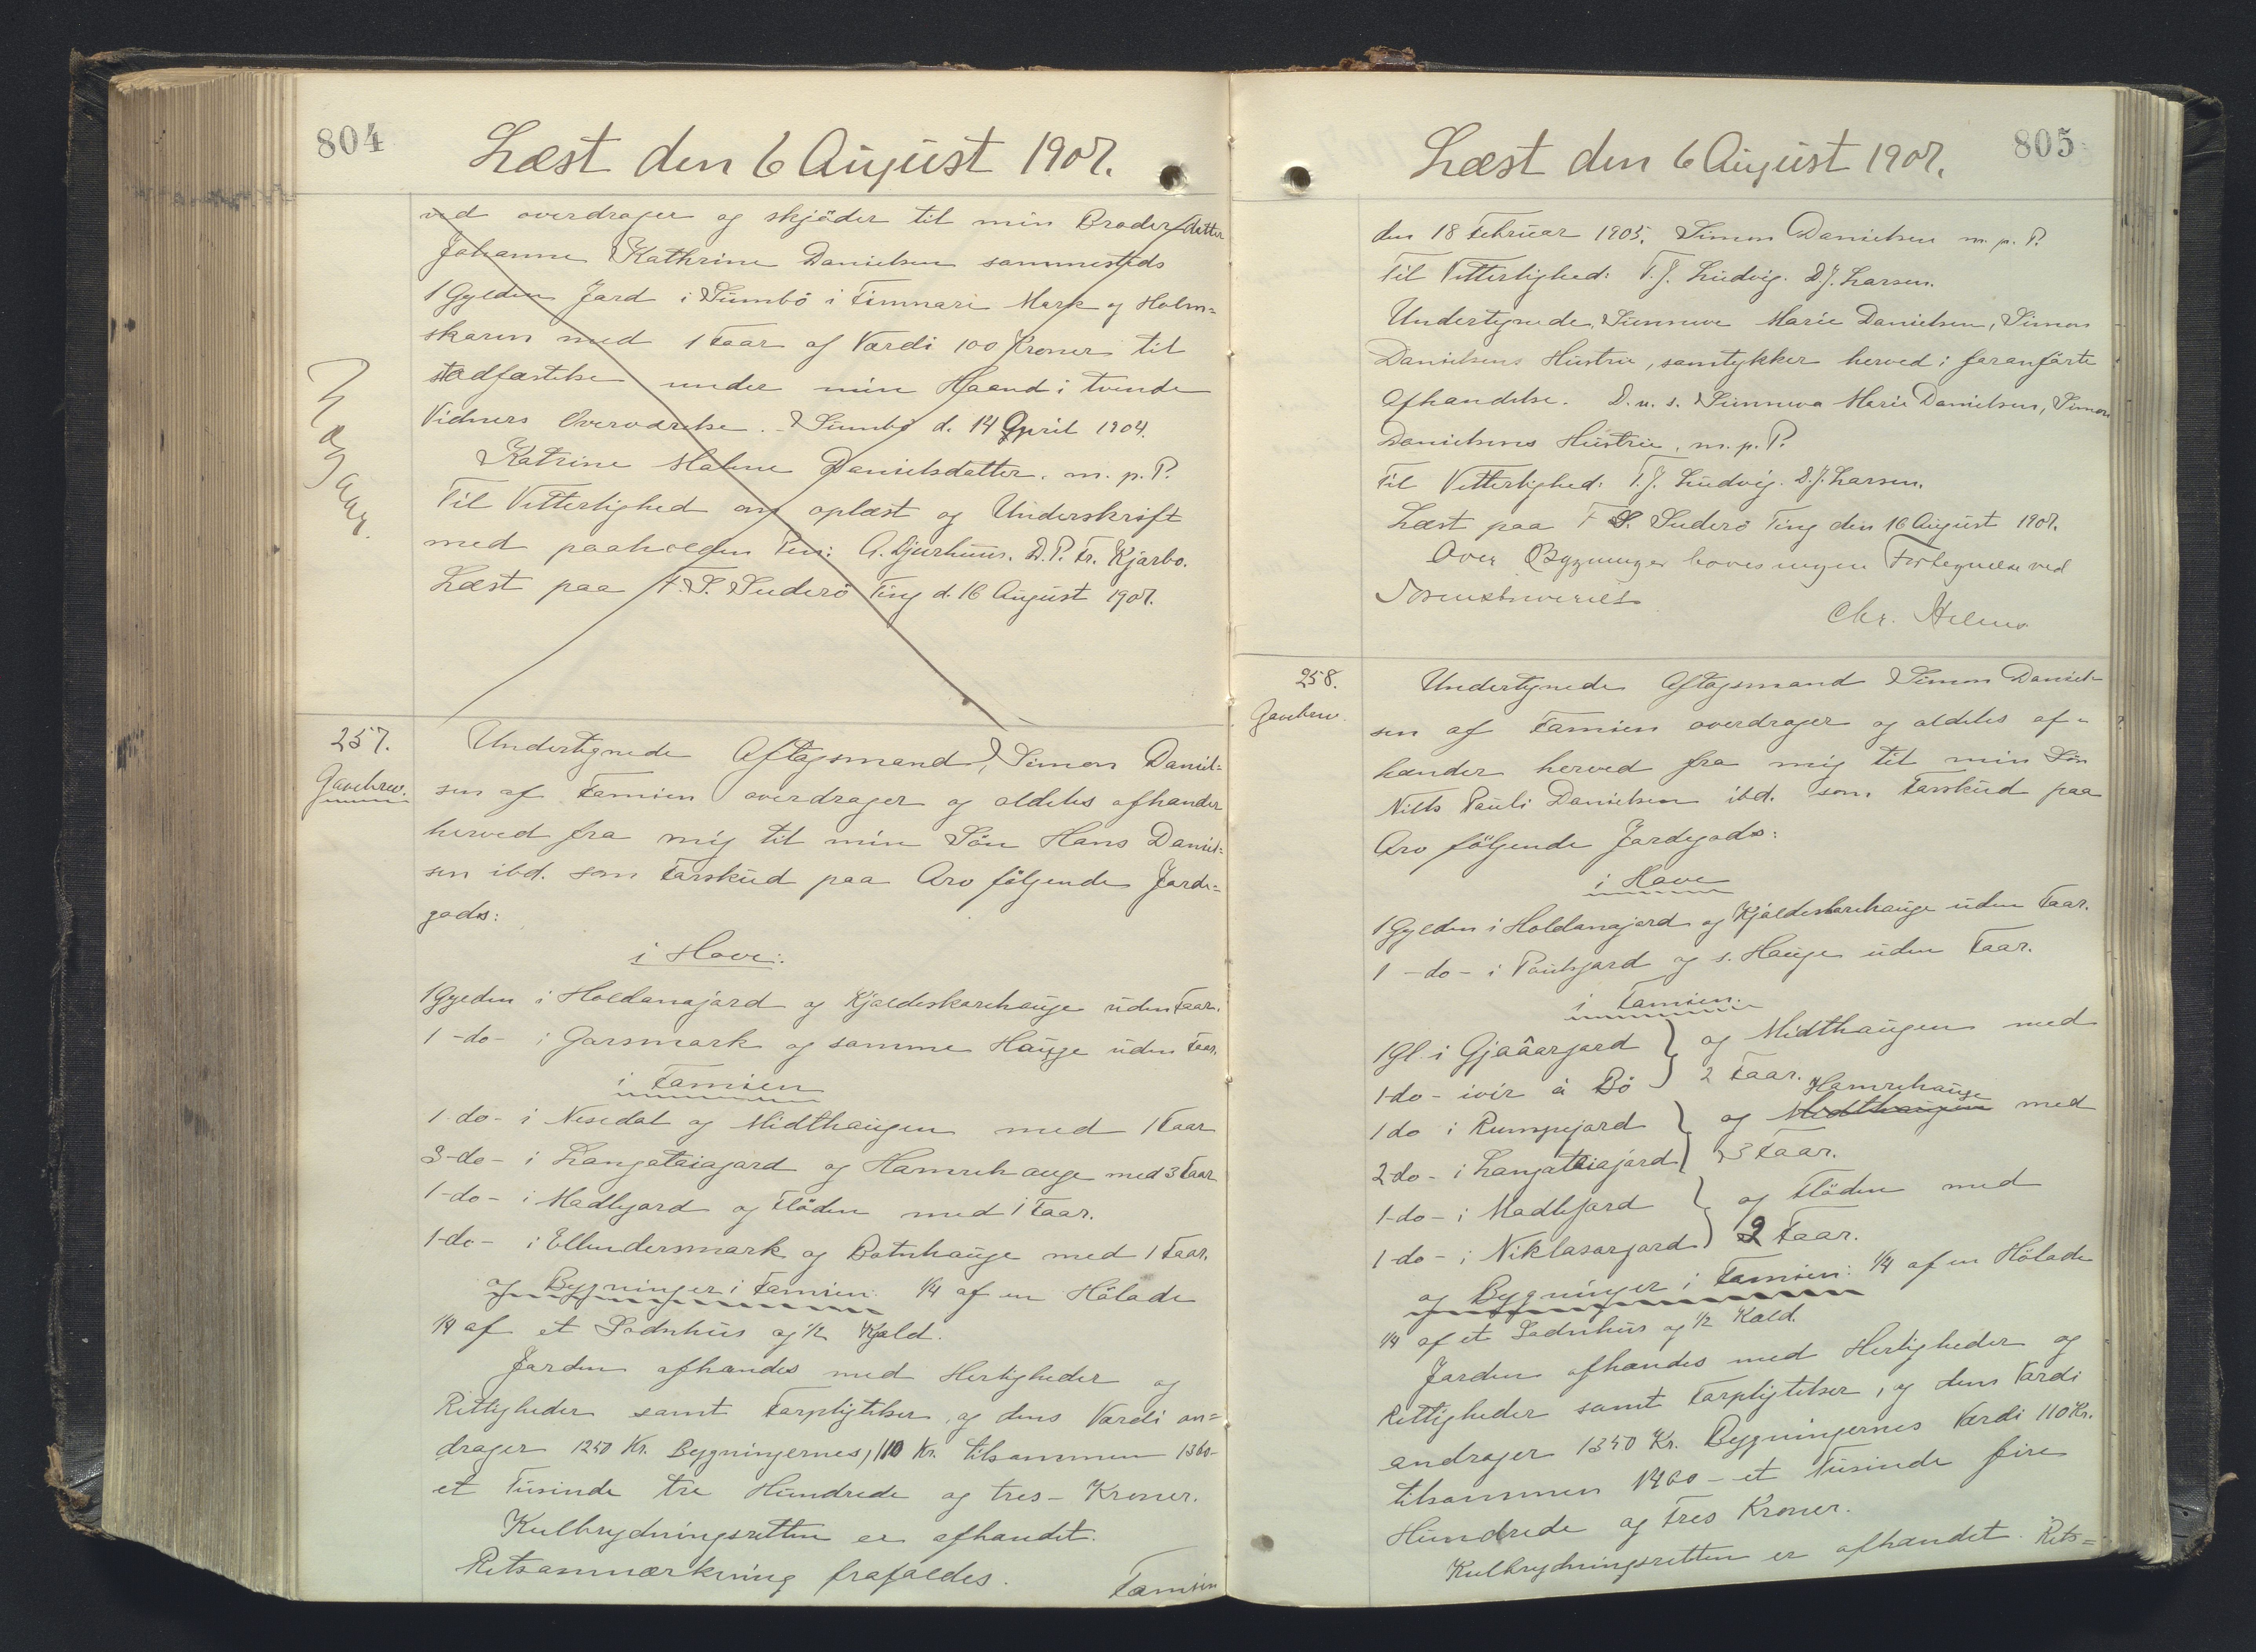 804
Læst den 6 August 1907.
ved overdrager og skjöder til min Broderdatter
Johanne Kathrine Danielsen sammesteds
1 Gylden Jord i Sumbö i Timnari Mark og Holm=
skaren med 1 Faar af Værdi 100 Kroner til
stadfæstelse under min Haand i tvende
Vidners Overværelse. Sumbö d. 14 April 1904.
Katrine Malene Danielsdatter. m. p. P.
Til Vitterlighed om oplæst og Underskrift
med paaholden Pen: A. Djurhuus. D. P. Fr. Kjærbo.
Læst paa F. S. Suderö Ting d. 16 August 1907.
257.
Gavebrev.
Undertegnede Aftagsmand, Simon Daniel=
sen af Famien overdrager og aldeles afhænder
herved fra mig til min Sön Hans Daniel=
sen ibd. som Forskud paa Arv fölgende Jorde=
gods:
i Hove:
1 Gylden i Holdanajord og Kjældeskorehauge uden Faar.
1 -do- i Garsmark og samme Hauge uden Faar.
i Famien
1-do- i Nesedal og Midthaugen med 1 Faar
3-do- i Langateiagard og Hamrehauge med 3 Faar
1-do- i Madlegard og Flöden med 1 Faar.
1-do- i Ellendersmark og Botnhauge med 1 Faar.
og Bygninger i Famien: 1/4 af en Hölade
1/4 af et Sodnhus og 1/2 Kjald.
Jorden afhændes med Herligheder og
Rettigheder samt Forpligtelser, og dens Værdi an=
drager 1250 Kr. Bygningernes, 110 Kr. tilsammen 1360-
et Tusinde tre Hundrede og tres- Kroner.
Kulbrydningsretten er afhændet.
Retsanmærkning frafaldes.
Famien
805
Læst den 6 August 1907.
den 18 Februar 1905. Simon Danielsen m. p. P.
Til Vitterlighed: T. J. Ludvig. D. J. Larsen.
Undertegnede, Sunneve Marie Danielsen, Simon
Danielsens Hustru, samtykker herved i foranförte
Afhændelse. D. u. s. Sunneva Marie Danielsen, Simon
Danielsens Hustru. m. p. P.
Til Vitterlighed: T. J. Ludvig. D. J. Larsen.
Læst paa F S. Suderö Ting den 16 August 1907.
Over Bygninger haves ingen Fortegnelse ved
Sorenskriveriet
Chr. Helms
258.
Gavebrev.
Undertegnede Aftagsmand Simon Daniel-
sen af Famien overdrager og aldeles af-
hænder herved fra mig til min Sön
Niels Pauli Danielsen ibd. som Forskud paa
Arv fölgende Jordegods:
i Hove
1 Gylden i Holdanajord og Kjældeskorehauge uden Faar.
1 -do- i Paulsjord og s. Hauge uden Faar.
i Famien.
1 Gl. i Gjaäargard } og Midthaugen med
1-do- ivir á Bö } 2 Faar.
Hamrehauge
1 do i Rumpejord } og Midthaugen med
2 do- i Langateiajord } 3 Faar.
1-do- i Madlegard } og Flöden med
1-do- i Niklasargard } 2 Faar.
og Bygninger i Famien: 1/4 af en Hölade
1/4 af et Sodnhus og 1/2 Kald.
Jorden afhændes med Herligheder og
Rettigheder samt Forpligtelser, og dens Værdi
andrager 1350 Kr. Bygningernes Værdi 110 Kr.
tilsammen 1460 - et Tusinde fire
Hundrede og Tres Kroner.
Kulbrydningsretten er afhændet. Rets=